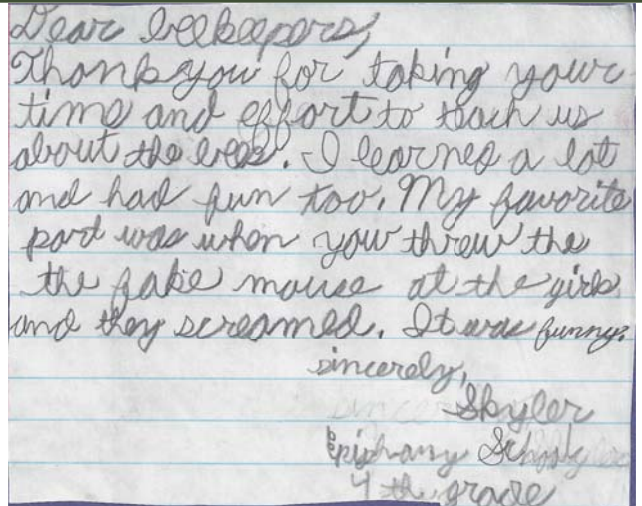 Dear beekeepers,
Thank you for taking your
time and effort to teach us
about the bees. I learned a lot
and had fun too. My favorite
part was when you threw the
the fake mouse at the girls
and they screamed. It was funny.
sincerely,
Skyler
Epiphany School
4th grade